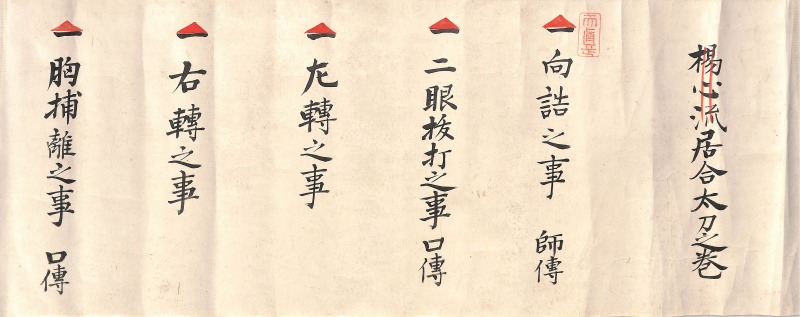 楊心流居合太刀之巻
一 向誥之事 師傳
一 二眼抜打之事 口傳
一 左轉之事
一 右轉之事
一 胸捕離之事 口傳